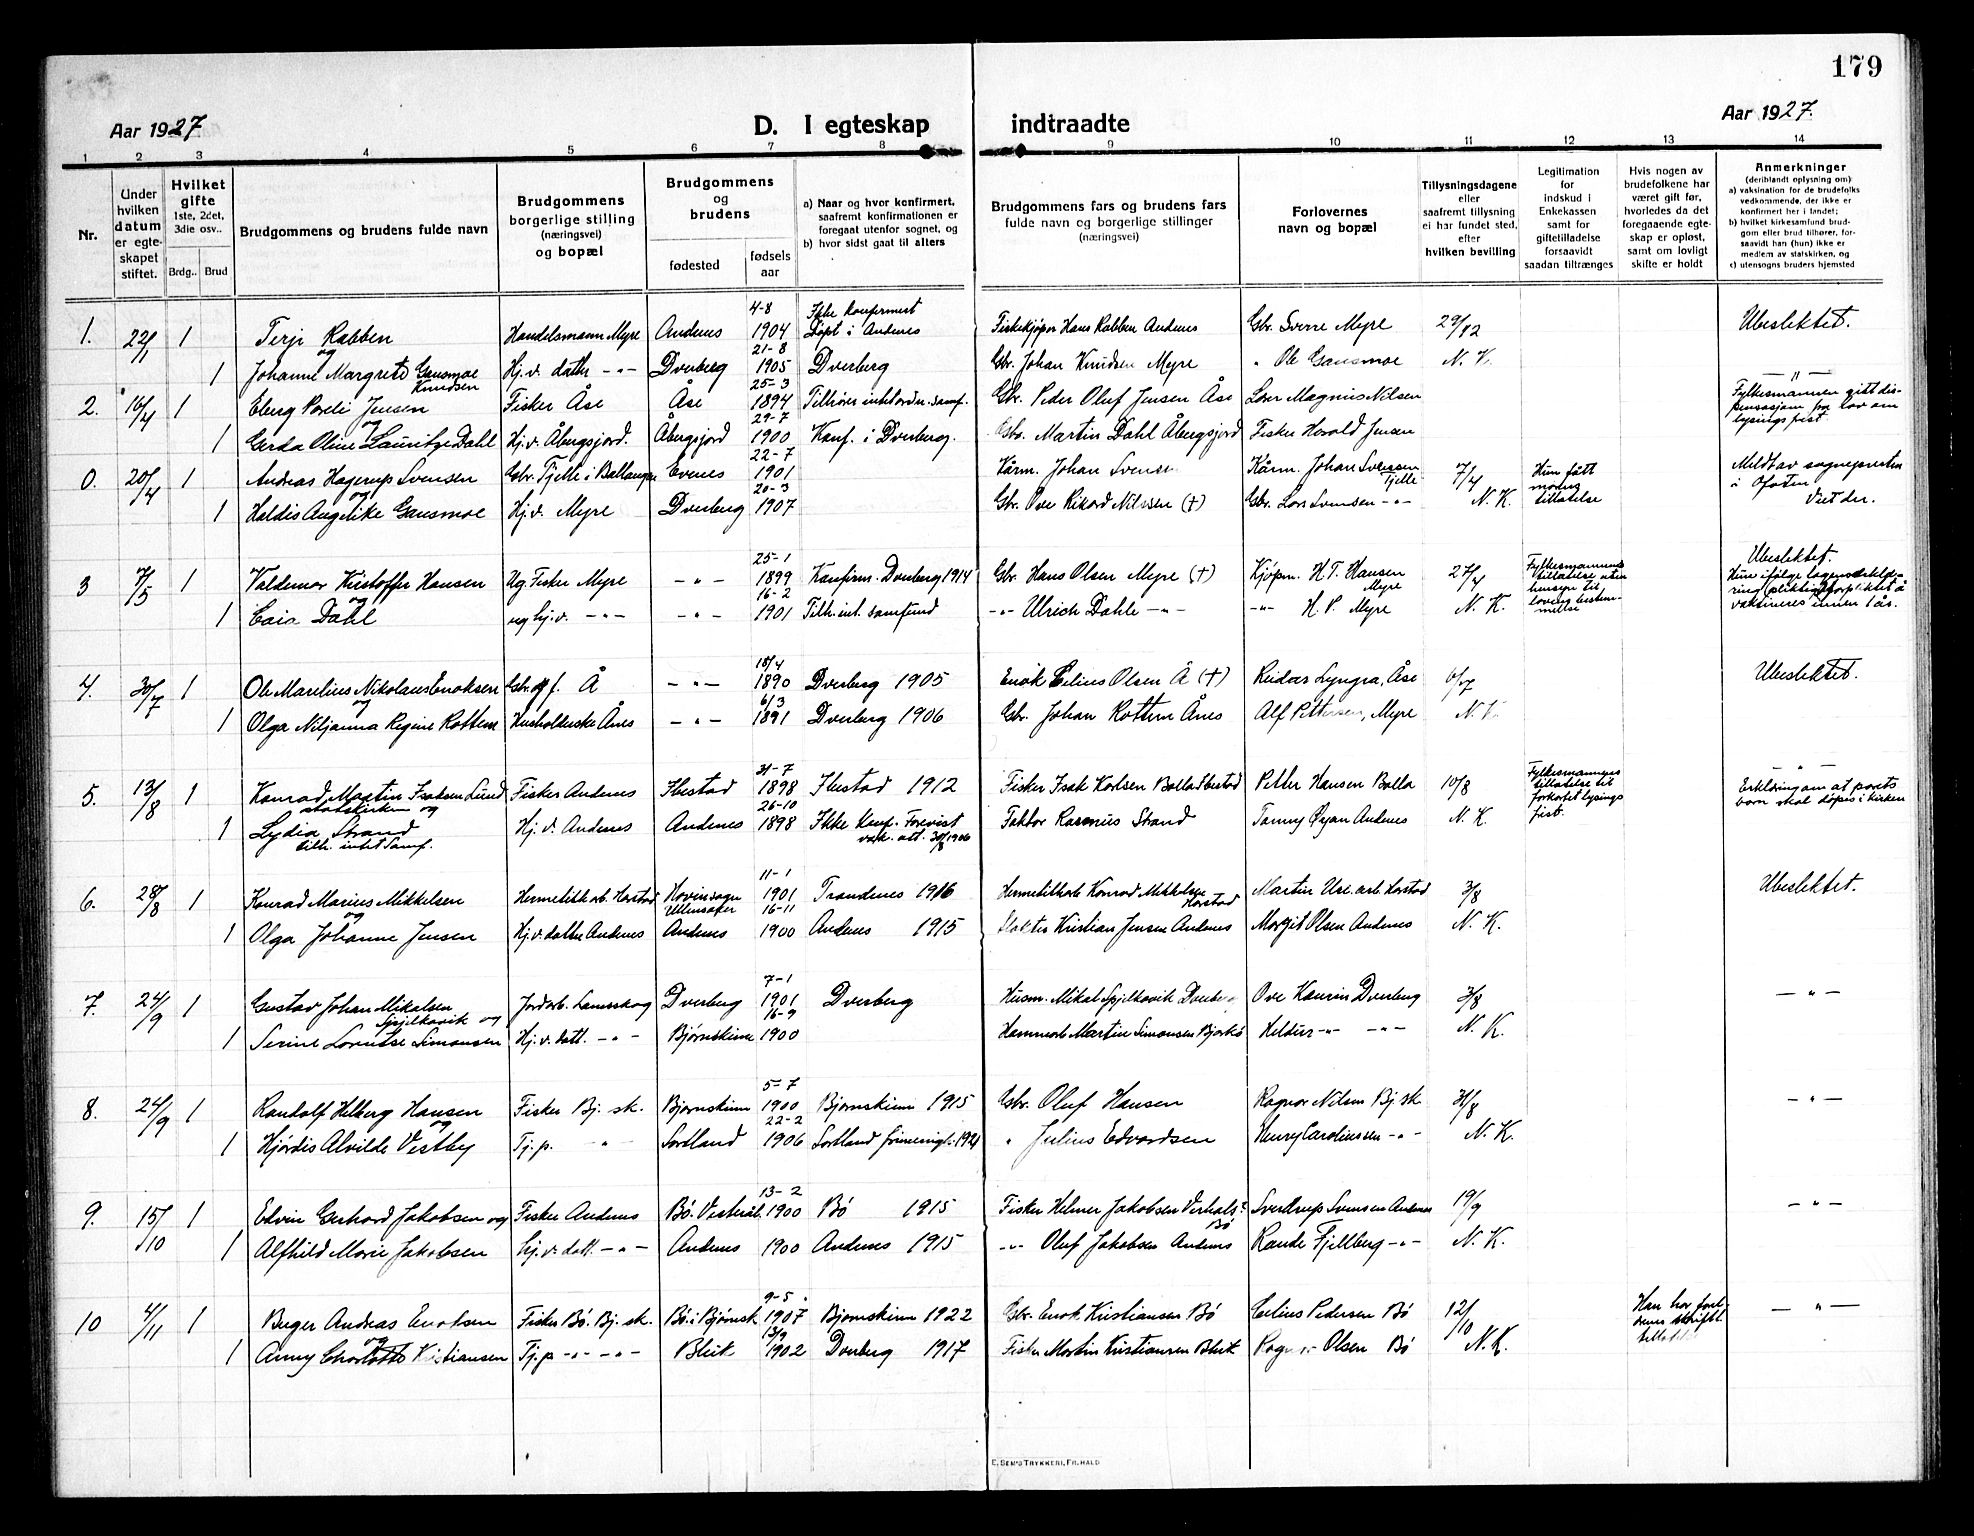 179
Aar 1927
D. I egteskap indtraadte
Aar 1927.
1 2 3 4 5 6 7 8 9 10 11 12 13 14
Nr.
Under hvilken datum er egteskapet stiftet.
Hvilket gifte 1ste, 2det, 3die osv..
Brdg.. Brud
Brudgommens og brudens fulde navn
Brudgommens borgerlige stilling (næringsvei) og bopæl
Brudgommens og brudens
fødested
fødsels aar
a) Naar og hvor konfirmert, saafremt konfirmationen er foregaat utenfor sognet, og
b) hvor sidst gaat til alters
Brudgommens fars og brudens fars fulde navn og borgerlige stillinger (næringsvei)
Forlovernes navn og bopæl
Tillysningsdagene eller saafremt tillysning ei har fundet sted, efter hvilken bevilling
Legitimation for indskud i Enkekassen samt for giftetilladelse forsaavidt saadan tiltrænges
Hvis nogen av brudefolkene har været gift før, hvorledes da det foregaaende egteskap er opløst, samt om lovligt skifte er holdt
Anmerkninger (deriblandt oplysning om)
a) vaksination for de brudefolks vedkommende, der ikke er konfirmert her i landet;
b) hvilket kirkesamfund brudgom eller brud tilhører, forsaavidt han (hun) ikke er medlem av statskirken, og
c) utensogns bruders hjemsted
1. 22/1 1 Terje Rabben Handelsmann Myre Andenes 4-8 1904 Ikke konfirmert Døpt i Andenes Fiskekjøper Hans Rabben Andenes Gbr. Sverre Myre 29/12 Ubeslektet.
og
1 Johanne Margrete Gausmoe Knudsen Hj.v. datter -"- Dverberg 21-8 1905 Dverberg Gbr. Johan Knudsen Myre " Ole Gausmoe N. K.
2. 16/4 1 Eberg Pareli Jensen Fisker Åse Åse 25-3 1894 Tilhører intet ordn. samf. Gbr. Peder Oluf Jensen Åse Lærer Magnus Nilsen -"- Fylkesmannen gitt dispensasjon fra lov om lysingsfrist.
og
1 Gerda Oline Lauritze Dahl Hj.v. Åbergsjord. Åbergsjord 29-7 1900 Konf. i Dverberg. Gbr. Martin Dahl Åbergsjord Fisker Harald Jensen
0. 20/4 1 Andreas Hagerup Svensen Gbr. Tjelle i Ballangen Evenes 22-7 1901 Kårm. Johan Svensen Kårm. Johan Svensen Tjelle 7/4 Hun fått mors tillatelse Meldt av sognepresten i Ofoten
og
1 Haldis Angelike Gausmoe Hj.v. Myre Dverberg 20-3 1907 Gbr. Ove Rikard Nilssen (†) Gbr. Lars Svensen -"- N. K. Viet der.
3 7/5 1 Valdemar Kristoffer Hansen Ug. Fisker Myre -"- 25-1 1899 Konfirm. Dverberg 1914 Gbr. Hans Olsen Myre (†) Kjøpm. H. T. Hansen Myre 27/4 Fylkesmannens tillatelse uten hensyn til lovens bestemmelse Ubeslektet. Hun ifølge lægeerklæring forpliktet å vaksineres innen 1 år.
og
1 Caia Dahl ug hj.v. -"- -"- 16-2 1901 Tilh. int. samfund -"- Ulrich Dahle -"- -"- H. P. Myre N. K.
4. 30/7 1 Ole Marelius Nikolaus Enoksen Gbr. og f. Å -"- 18/4 1890 Dverberg 1905 Enok Celius Olsen Å (†) Reidar Lyngra, Åse 6/7 Ubeslektet.
og
1 Olga Niljanna Regine Rottem Husholderske Ånes -"- 6/3 1891 Dverberg 1906 Gbr. Johan Rottem Ånes Alf Pettersen, Myre N. K.
5. 13/8 1 Konrad Martin Isaksen Lund Fisker Andenes Ibestad 31-7 1898 Ibestad 1912 Fisker Isak Karlsen Balla Ibestad Petter Hansen Balla 10/8 Fylkesmannens tillatelse til forkortet lysingsfrist. -"- Erklæring om at parets barn skal døpes i kirken
statskirken og
1 Lydia Strand Hj.v. Andenes Andenes 26-10 1898 Ikke konf. Forevist vak. att. 30/8 1906 Faktor Rasmus Strand Tommy Øyan Andenes N. K.
tilh. intet samf.
6. 28/8 1 Konrad Marius Mikkelsen Hermetikk arb. Harstad Hovinsogn Ullensaker 11-1 1901 Trondenes 1916 Hermetikkarb Konrad Mikkelsen Harstad Martin Use arb Harstad 3/8 Ubeslektet.
og
1 Olga Johanne Jensen Hj.v. datter Andenes Andenes 16-11 1900 Andenes 1915 Slakter Kristian Jensen Andenes Margit Olsen Andenes N. K.
7. 24/9 1 Gustav Johan Mikalsen Spjelkavik og Jordarb. Lamsskog Dverberg 7-1 1901 Dverberg Husm. Mikal Spjelkavik Dverberg Ove Kanrin Dverberg 3/8 -"-
1 Serine Lovntse Simonsen Hj.v. datt. -"- Bjørnskinn 16-9 1900 Hammerb Martin Simonsen Bjarkø Heldur -"- -"- N. K.
8. 24/9 1 Randolf Hilberg Hansen Fisker Bj. sk. Bjørnskinn 5-7 1900 Bjørnskinn 1915 Gbr. Oluf Hansen Ragnar Nilsen Bj. sk 31/8 -"-
og
1 Hjørdis Alvilde Vestby Tj. p. " Sortland 22-2 1906 Sortland frimenigh. 1921 " Julius Edvardsen Henry Carolinssen -"- N. K.
9. 15/10 1 Edvin Gerhard Jakobsen og Fisker Andenes Bø. Vesterål. 13-2 1900 Bø 1915 Fisker Helmer Jakobsen Verhals Bø Sverdrup Svensen Andenes 19/9 -"-
1 Alfhild Marie Jakobsen hj.v. datt. -"- Andenes 1900 Andenes 1915 -"- Oluf Jakobsen Andenes Rande Fjellberg -"- N. K.
10 4/11 1 Birger Andreas Enoksen Fisker Bø. Bj. sk. Bø. i Bjørnsk 9-5 1907 Bjørnskinn 1922 Gbr. Enok Kristiansen Bø Celius Pedersen Bø 12/10 Han har foreldrenes skriftl. tillatelse -"-
og
1 Anny Charlotte Kristiansen Tj. p -"- -"- Bleik 13/9 1902 Dverberg 1917 Fisker Martin Kristiansen Bleik Ragnar Olsen Bø N. K.
E. SEM'S TRYKKERI, FR.HALD